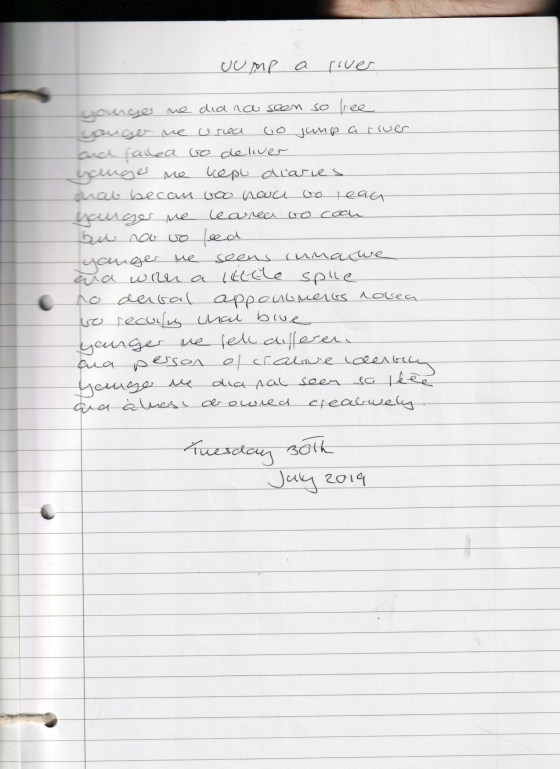 JUMP a river
younger me did not seem so free
younger me tried to jump a river
and failed to deliver
younger me kept diaries
that became too hard to read
younger me learned to cook
but not to feed
younger me seems immature
and with a little spite
no dental appointments noted
to rectify that bite
younger me felt different
and person of creative identity
younger me did not seem so free
and almost drowned creatively.
Tuesday 30th
July 2019